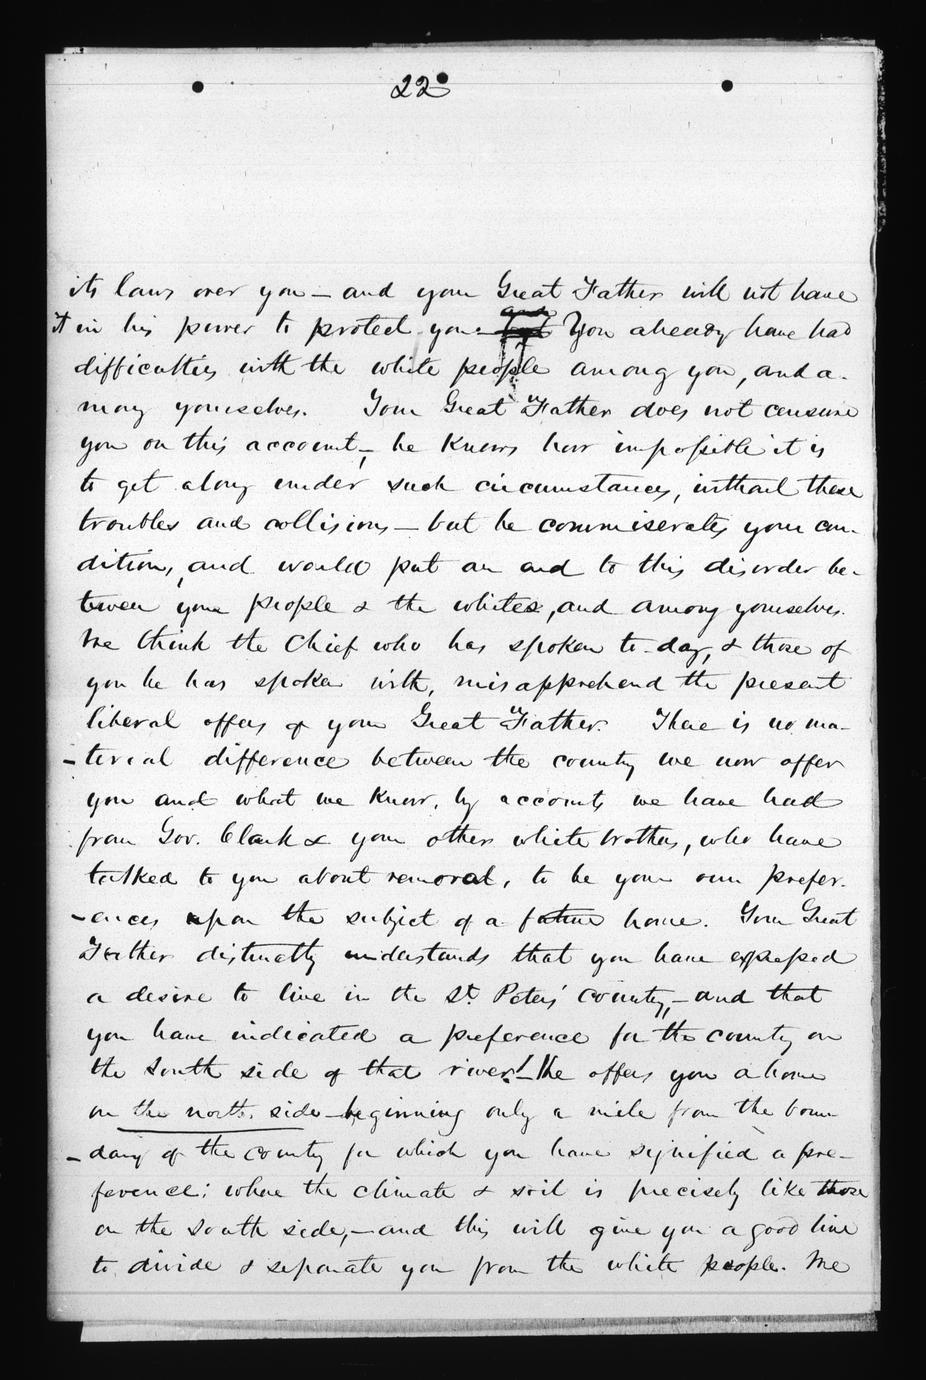 22
its laws over you – and your Great Father will not have
it in his power to protect you – and You already have had
difficulties with the white people among you, and a-
mong yourselves. Your Great Father does not censure
you on this account, – he knows how impossible it is
to get along under such circumstances, without these
troubles and collisions – but he commiserates your con-
dition, and would put an end to this disorder be-
tween your people & the whites, and among yourselves.
We think the Chief who has spoken to-day, & those of
you he has spoken with, misapprehend the present
liberal offers of your Great Father. There is no ma-
-terial difference between the country we now offer
you and what we know, by accounts we have had
from Gov. Clark & your other white brothers, who have
talked to you about removal, to be your own prefer-
-ences upon the subject of a future home. Your Great
Father distinctly understands that you have expressed
a desire to live in the St. Peters' country, – and that
you have indicated a preference for the country on
the South side of that river! – He offers you a home
on the north side – beginning only a mile from the boun-
-dary of the country for which you have signified a pre-
ference; where the climate & soil is precisely like those
on the South side, – and this will give you a good line
to divide & separate you from the white people. We